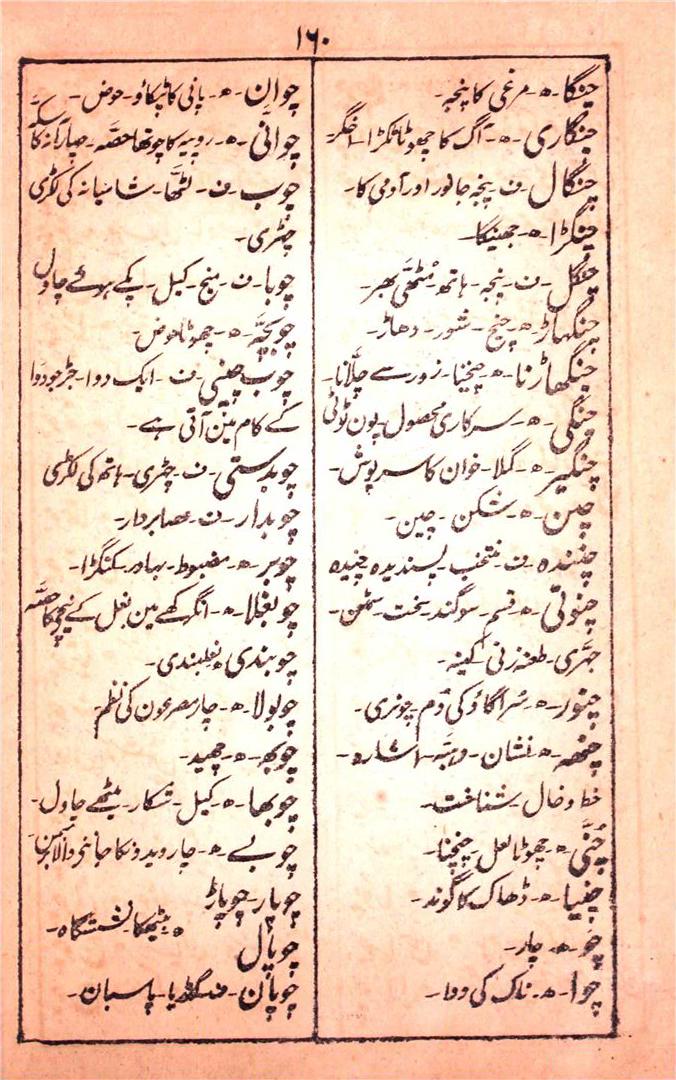 ۱۶۰
چنگا۔ھ۔مرغی کا پنجہ۔
چنگاری۔ھ۔آگ کا چھوٹا ٹکڑا۔اخگر۔
چنگال۔ف۔پنجہ جانور اور آدمی کا۔
چنگڑا۔ھ۔جھینگا۔
چنگل۔ف۔پنجہ۔ہاتھ۔مٹھی بھر۔
چنگہاڑ۔ھ۔چیخ۔شور۔دھاڑ۔
چنگھاڑنا۔ھ۔چیخنا۔زور سے چلّانا۔
چنگی۔ھ۔سرکاری محصول۔پون ٹوٹی
چنگیر۔ھ۔گملا۔خوان کا سرپوش۔
چین۔ھ۔شکن۔چین۔
چنندہ۔ف۔منتخب۔پسندیدہ چنیدہ
چنوتی۔ھ۔قسم۔سوگند۔سخت۔
طعنہ زنی۔کینہ۔
چنور۔ھ۔سُراگاؤ کی دُم۔چونری۔
ھ۔نشان۔دہبّہ۔اشارہ۔
خط وخال۔شناخت۔
چُنّی۔ھ۔چھوٹا لعل۔چنچنا۔
چنیا۔ھ۔ڈھاک کا گوند۔
چو۔ھ۔چار۔
چوا۔ھ۔ناک کی دوا۔
چوان۔ھ۔پانی کا ٹپکاؤ۔حوض۔
چوانّی۔ھ۔روپیہ کا چوتھا حصّہ۔چار آنہ کا سکّہ
چوب۔ف۔لٹھّا۔شامیانہ کی لکڑی
چھڑی۔
چوبا۔ف۔میخ۔کیل۔پکے ہوئے چاول
چوبچّہ۔ھ۔چھوٹا حوض۔
چوب چینی۔ف۔ایک دوا۔جڑ جو دوا
کے کام مین آتی ہے۔
چوبدستی۔ف۔چھڑی۔ہاتھ کی لکڑی
چوبدار۔ف۔عصابردار۔
چوبر۔ھ۔مضبوط۔بہادر۔
چوبغلا۔ھ۔انگرکھے مین بغل کے نیچے کا حصّہ
چوبندی۔نعلبندی۔
چوبولا۔ھ۔چار مصرعون کی نظم۔
چوبھ۔ھ۔چھید۔
چوبھا۔ھ۔کیل۔شکار۔میٹھے چاول۔
چوبے۔ھ۔چار ویدونکا جاننے والا برہمن۔
چوپار۔چوپاڑ
چوپال
ھ بیٹھک۔نشستگاہ۔
چوپان۔ف۔گڈریا۔پاسبان۔